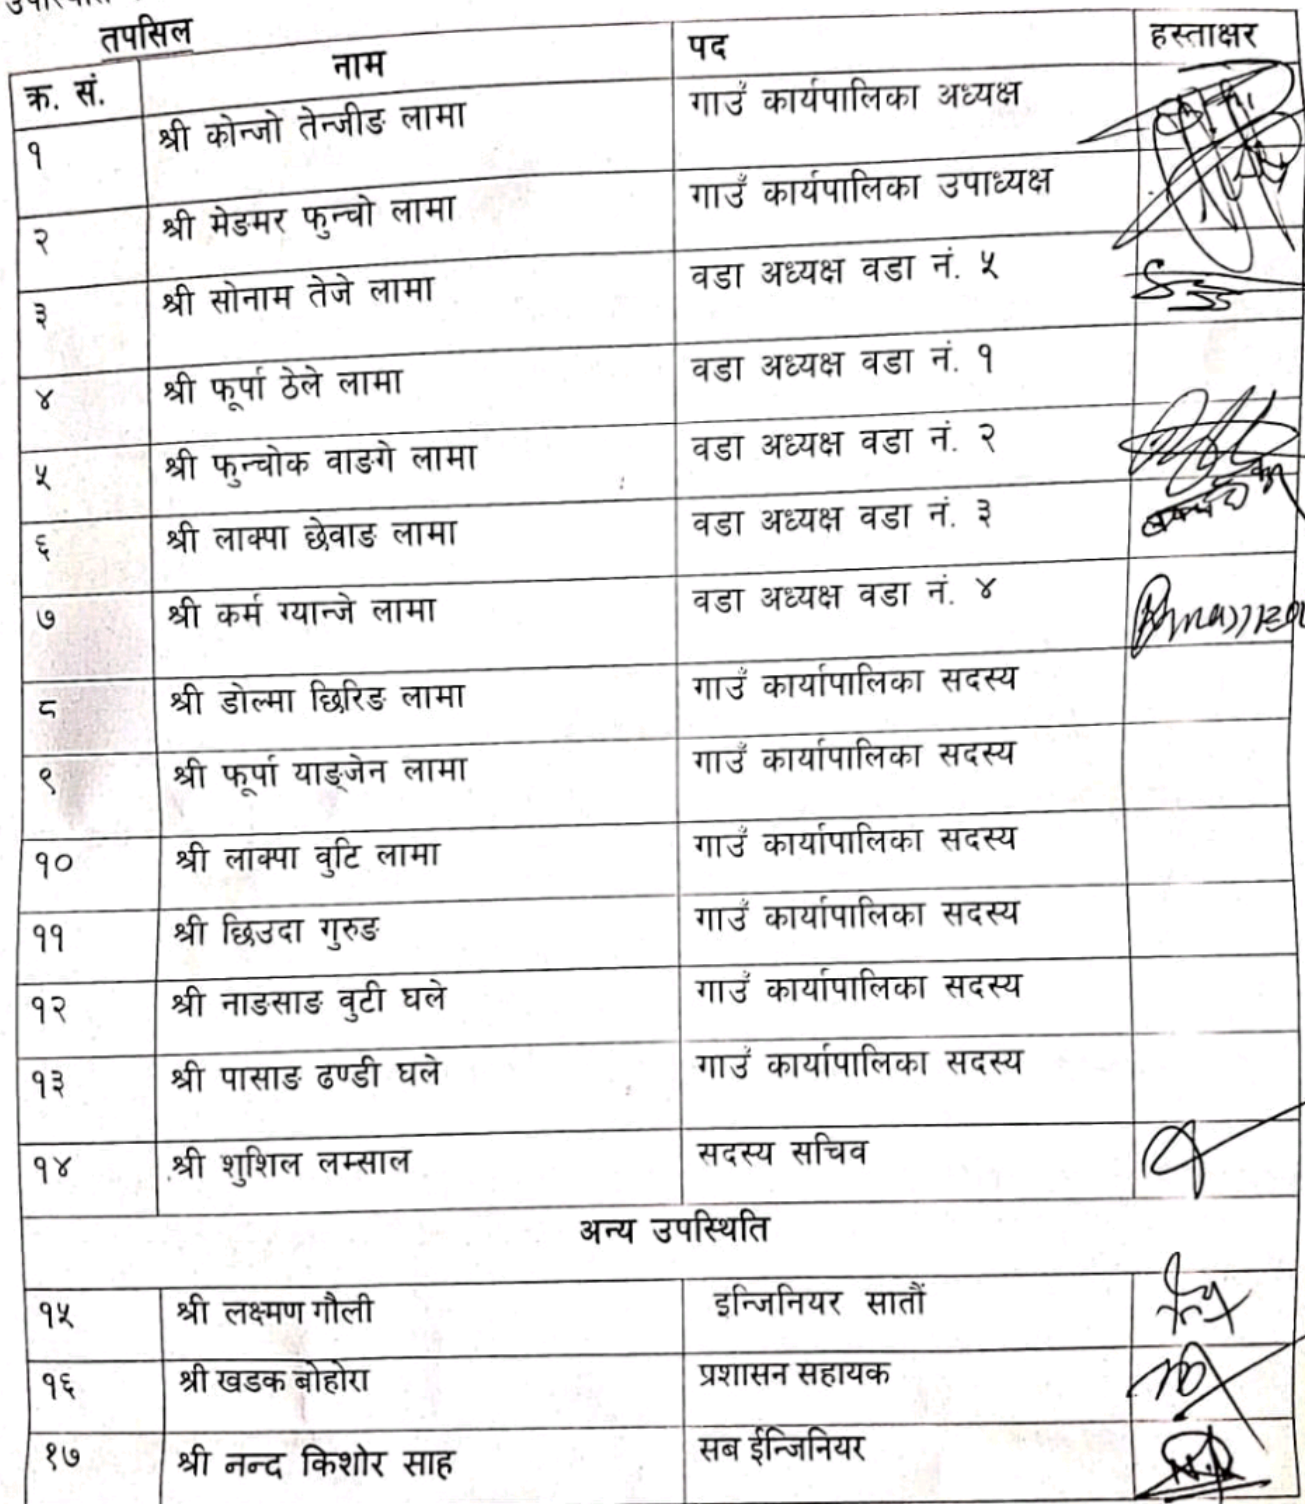 तपसिल
क्र. सं. नाम पद हस्ताक्षर
१ श्री कोन्जो तेन्जीङ लामा गाउँ कार्यपालिका अध्यक्ष
२ श्री मेङमर फुन्चो लामा गाउँ कार्यपालिका उपाध्यक्ष
३ श्री सोनाम तेजे लामा वडा अध्यक्ष वडा नं. ५
४ श्री फूर्पा ठेले लामा वडा अध्यक्ष वडा नं. १
५ श्री फुन्चोक वाङगे लामा वडा अध्यक्ष वडा नं. २
६ श्री लाक्पा छेवाङ लामा वडा अध्यक्ष वडा नं. ३
७ श्री कर्म ग्यान्जे लामा वडा अध्यक्ष वडा नं. ४
८ श्री डोल्मा छिरिङ लामा गाउँ कार्यापालिका सदस्य
९ श्री फूर्पा याङ्जेन लामा गाउँ कार्यापालिका सदस्य
१० श्री लाक्पा वुटि लामा गाउँ कार्यापालिका सदस्य
११ श्री छिउदा गुरुङ गाउँ कार्यापालिका सदस्य
१२ श्री नाङसाङ वुटी घले गाउँ कार्यापालिका सदस्य
१३ श्री पासाङ ढण्डी घले गाउँ कार्यापालिका सदस्य
१४ श्री शुशिल लम्साल सदस्य सचिव
अन्य उपस्थिति
१५ श्री लक्ष्मण गौली इन्जिनियर सातौं
१६ श्री खडक बोहोरा प्रशासन सहायक
१७ श्री नन्द किशोर साह सब ईन्जिनियर